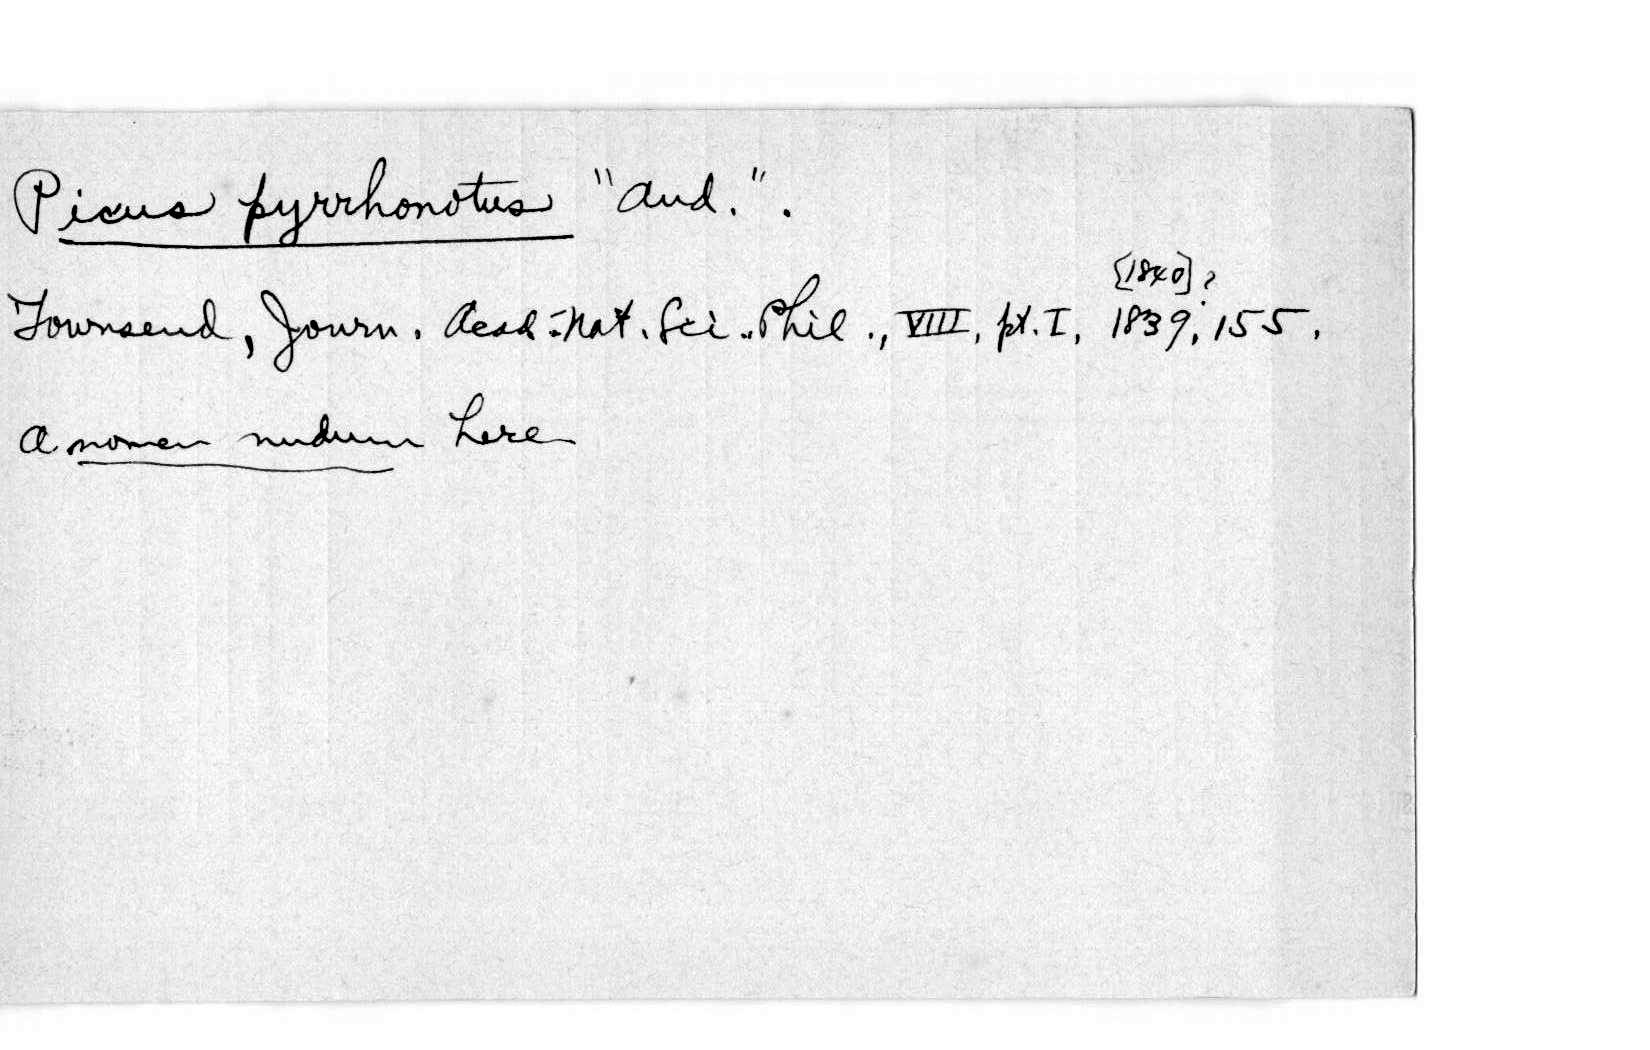 Picus pyrrhonotus "Aud.".
[1840]?
Townsend, Journ. Acad. Nat. Sci. Phil., VIII, pt. I, 1839, 155.
A nomen nudum here